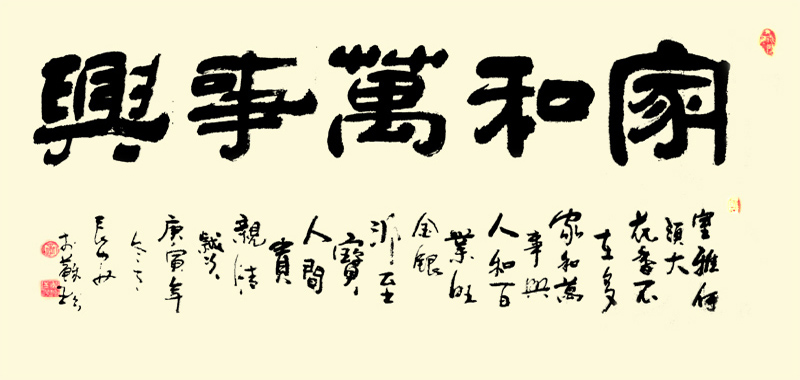 家和萬事興
室雅何
須大
花香不
在多
家和萬
事興
人和百
業旺
金銀
非至
寶
人間
貴
親情
庚寅年